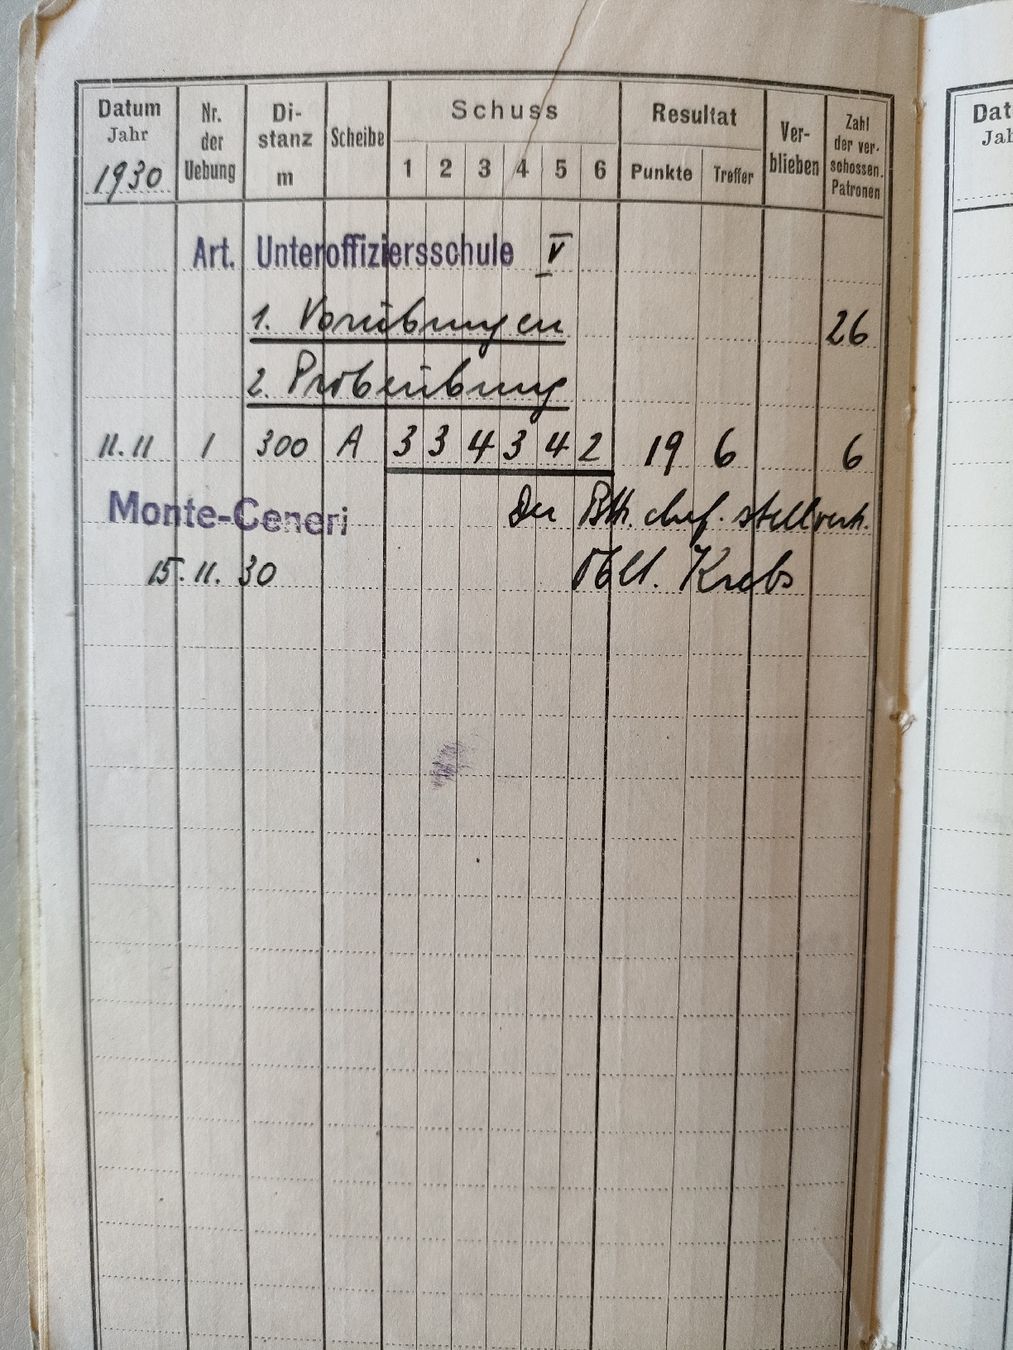 Datum Nr. Di- Scheibe Schuss Resultat Ver- Zahl
Jahr der stanz blieben der ver-
1930 Uebung m 1 2 3 4 5 6 Punkte Treffer schossen.
Patronen
Art. Unteroffiziersschule V
1. Vorübungen 26
2. Probeübung
11.11 1 300 A 3 3 4 3 4 2 19 6 6
Monte-Ceneri Der Bttr. chef. stellvertr.
15. 11. 30 Oblt. Krebs
Dat
Jah